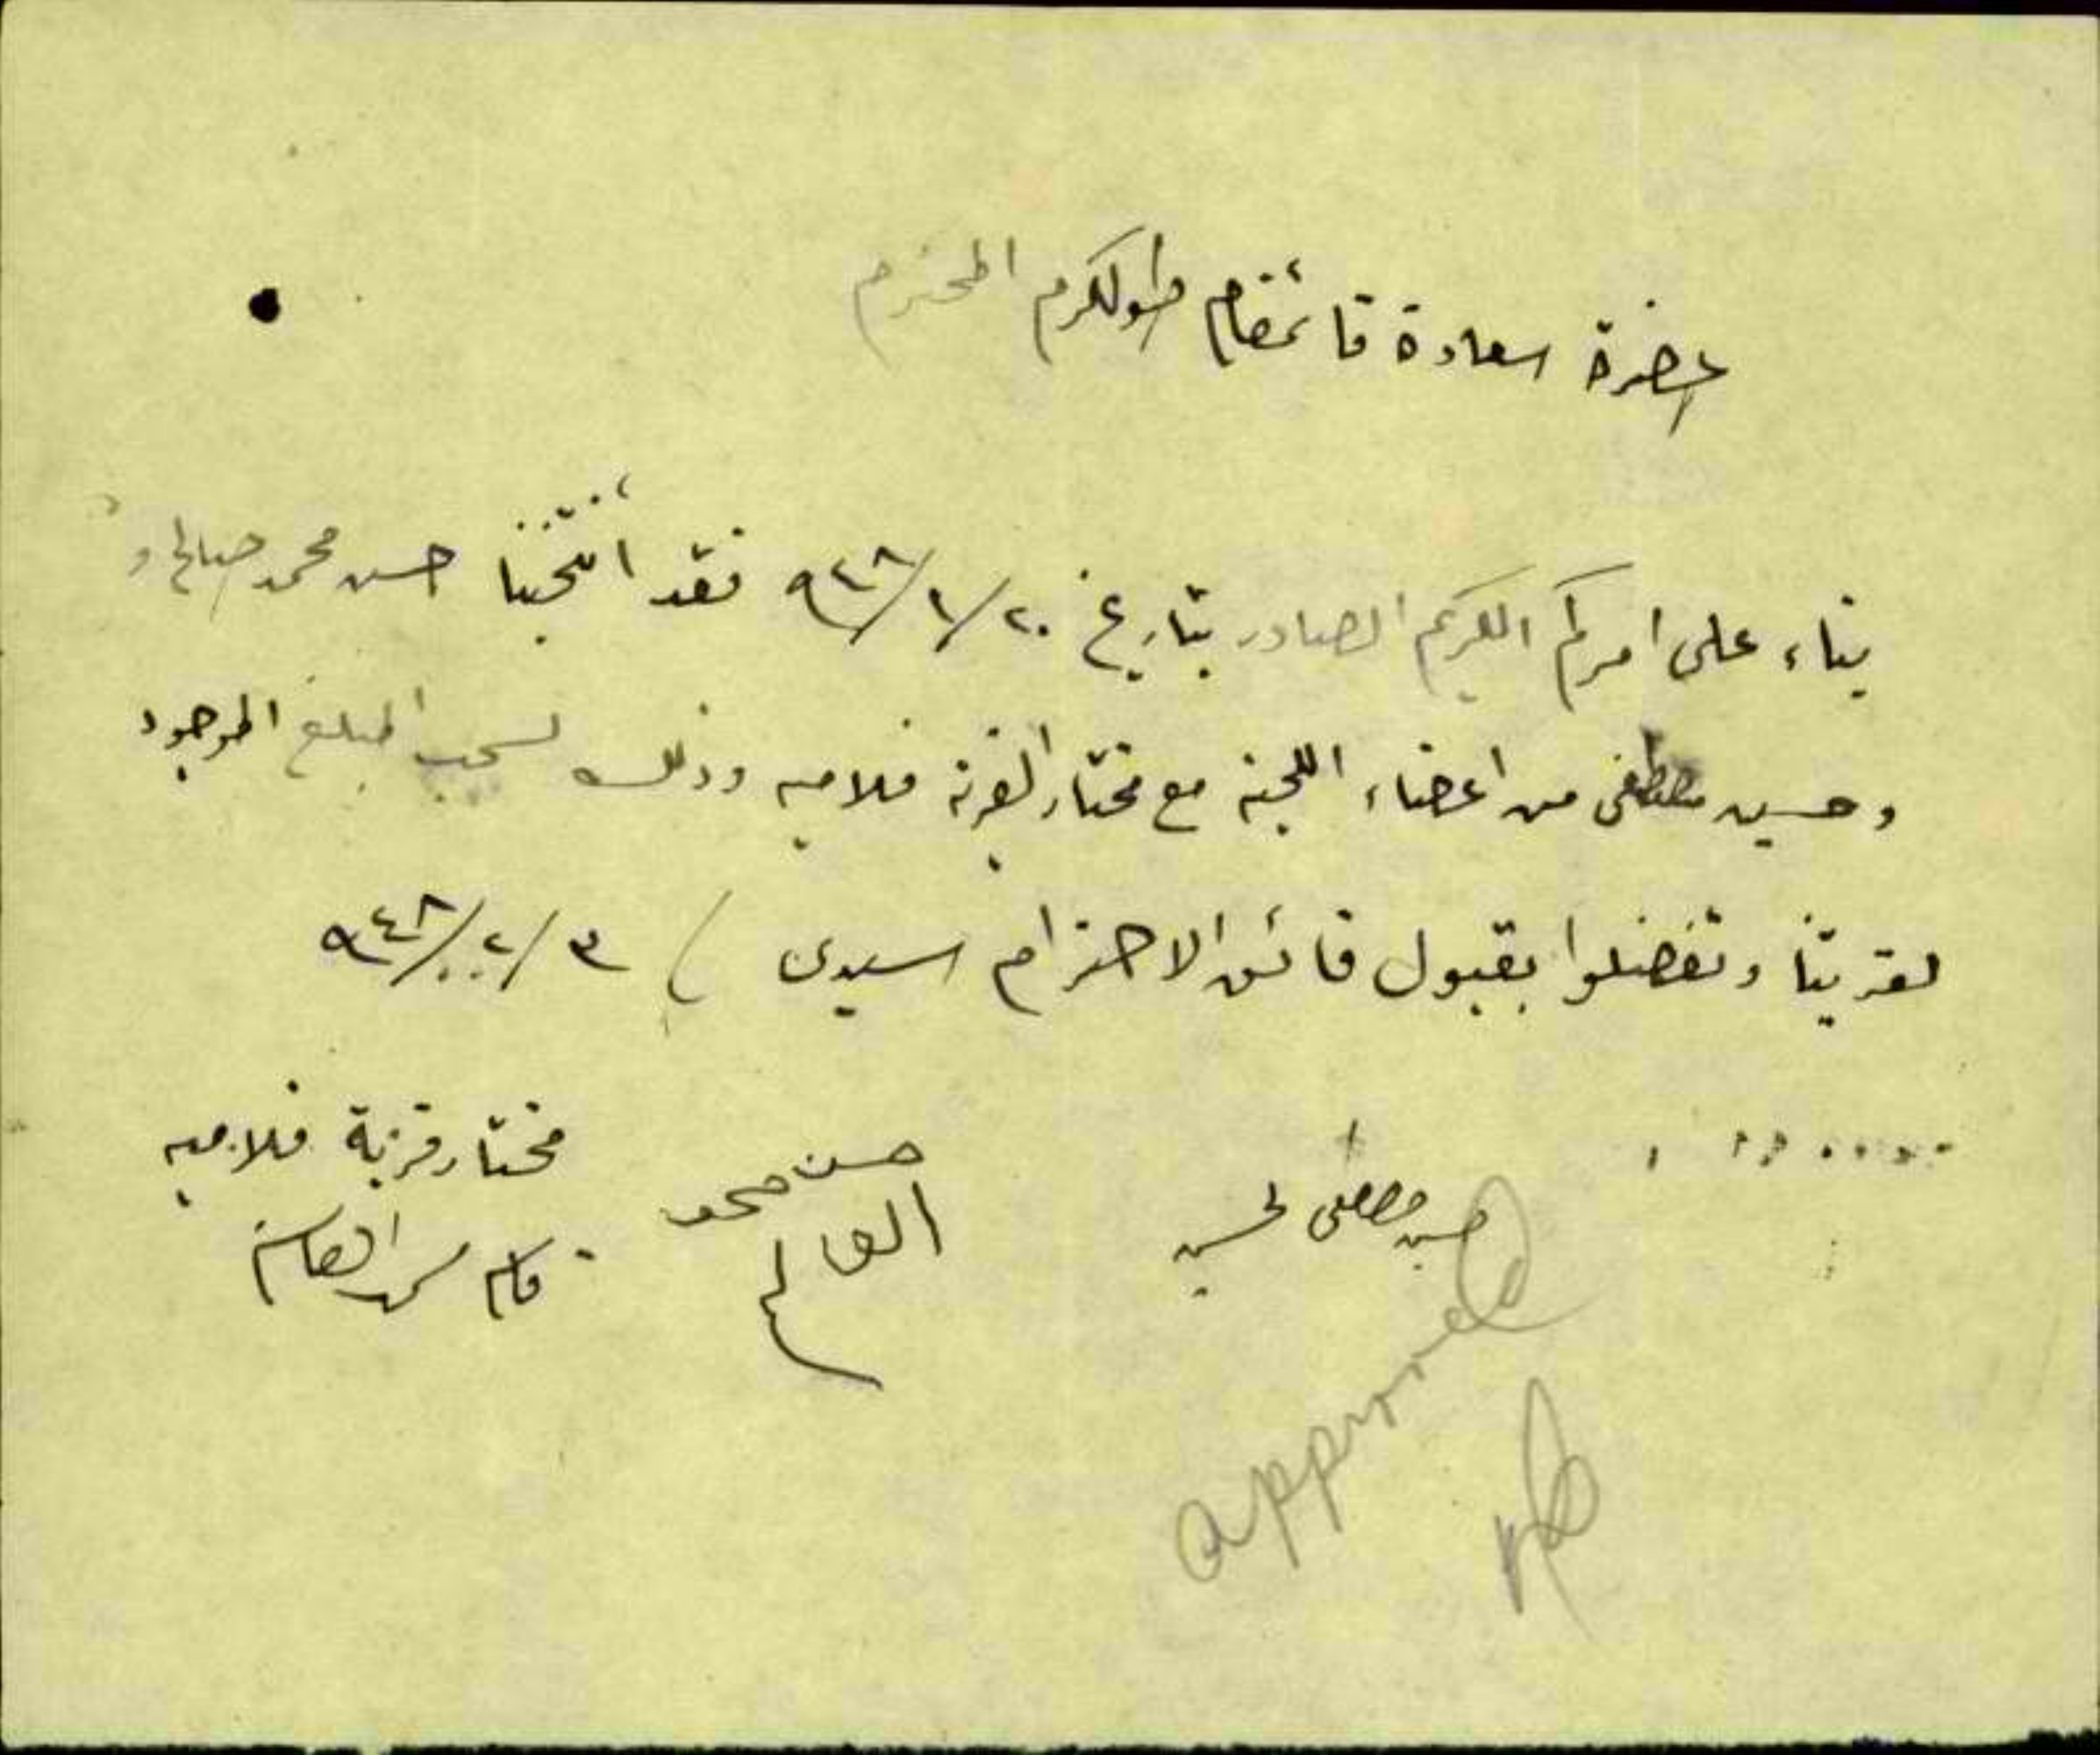 لحضرة سعادة قائمقام طولكرم المحترم
بناء على امركم الكريم الصادر بتاريخ ٢٠/١/٩٤٨ فقد أنتخبنا حسن محمد صالح و
وحسين مصطفى من اعضاء اللجنة مع مختار القرية فلاميه وذلك لسحب المبلغ الموجود
لقريتنا وتفضلوا بقبول فائق الاحترام سيدي / ٣/٢/٩٤٨
مختار قرية فلاميه
حسن محمد
حسين مصطفى
approved